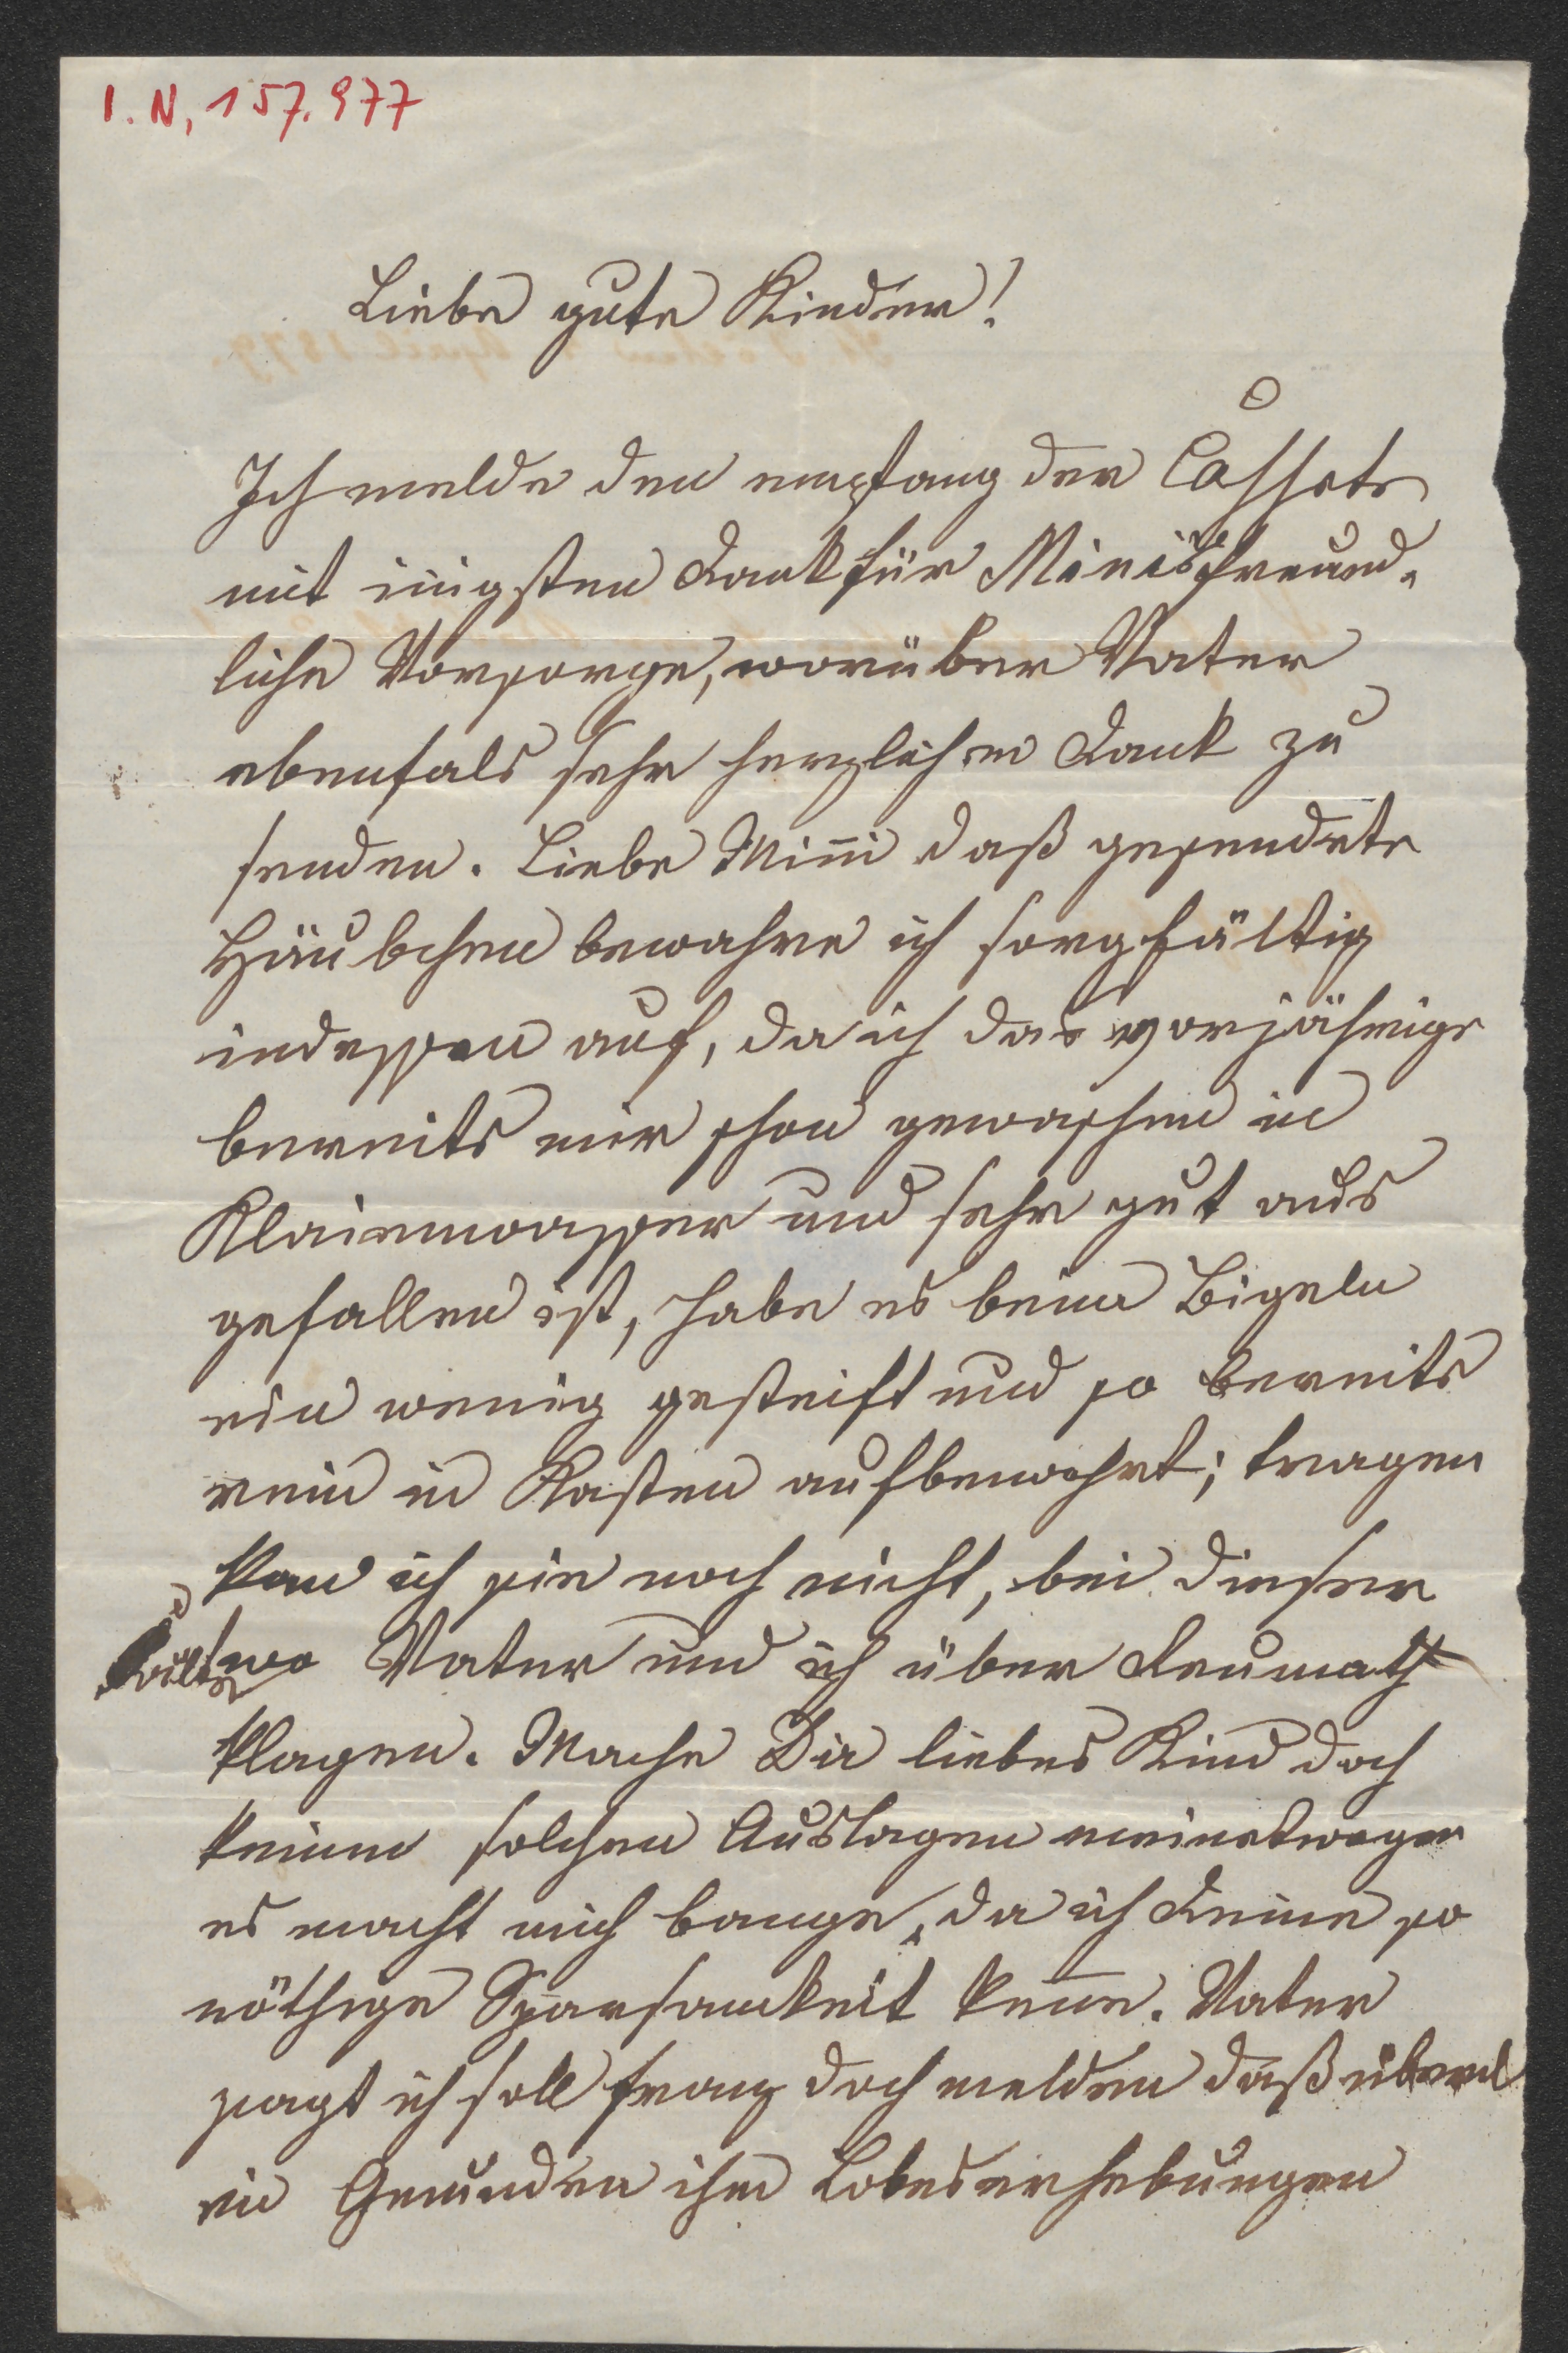 I. N. 157.977
Liebe gute Kinder!
Ich melde den empfang der Cassete
mit inigsten Dank für Minis freund-
liche Vorsorge, worüber Vater
ebenfals sehr herzlichen Dank zu
senden. Liebe Mini daß gesendete
Häubchen bewahre ich sorgfältig
indessen auf, da ich das vorjährige
bereits mir schon gewaschen in
Klaienwasser und sehr gut aus
gefallen ist, habe es beim Bigeln
ein wenig gesteift und so bereits
rein in Kasten aufbewahrt; tragen
kan ich sie noch nicht, bei dieser
wo Vater und ich über Reumath
klagen. Mache Dir liebes Kind doch
keinen solchen Auslagen meinetwegen
es macht mich bange, da ich Deine so
nöthige Sparsamkeit kenne. Vater
sagt ich soll Franz doch melden daß überal
in Gmunden ihm Lobeserhebungen